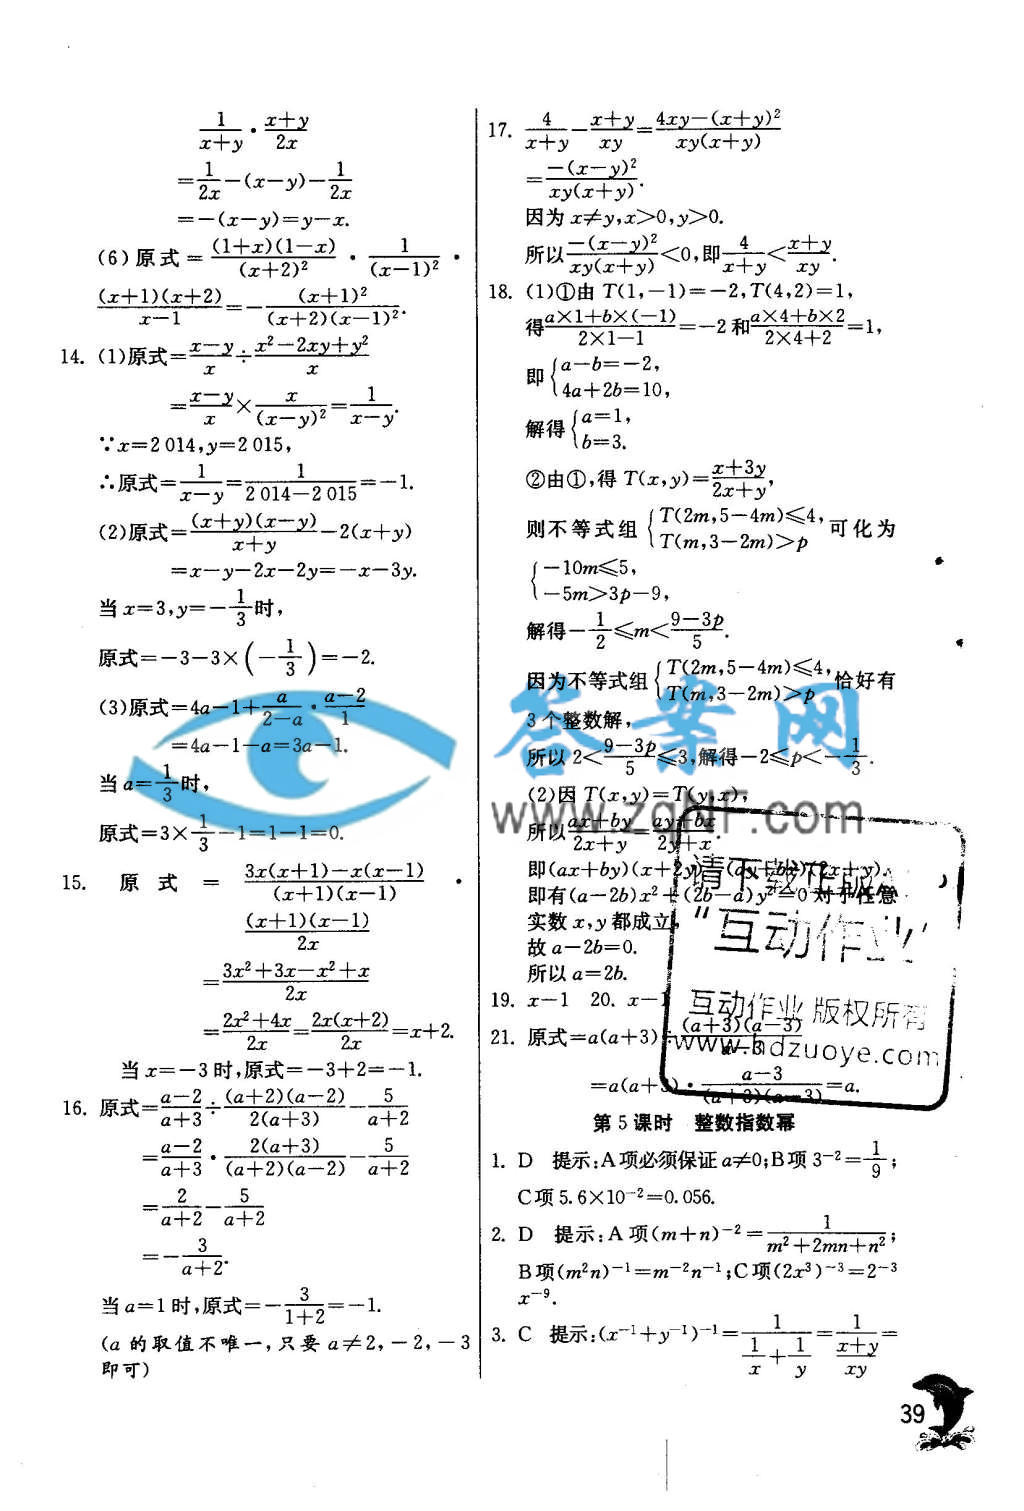 1/(x+y)·(x+y)/(2x)
=1/(2x)-(x-y)-1/(2x)
=-(x-y)=y-x.
(6)原式=(1+x)(1-x)/(x+2)²·1/(x-1)²·
(x+1)(x+2)/(x-1)=-(x+1)²/((x+2)(x-1)²).
14. (1)原式=(x-y)/x÷(x²-2xy+y²)/x
=(x-y)/x×x/(x-y)²=1/(x-y).
∵x=2 014,y=2 015,
∴原式=1/(x-y)=1/(2 014-2 015)=-1.
(2)原式=(x+y)(x-y)/(x+y)-2(x+y)
=x-y-2x-2y=-x-3y.
当x=3,y=-1/3时,
原式=-3-3×(-1/3)=-2.
(3)原式=4a-1+a/(2-a)·(a-2)/1
=4a-1-a=3a-1.
当a=1/3时,
原式=3×1/3-1=1-1=0.
15. 原式=(3x(x+1)-x(x-1))/((x+1)(x-1))·
(x+1)(x-1)/(2x)
=(3x²+3x-x²+x)/(2x)
=(2x²+4x)/(2x)=2x(x+2)/(2x)=x+2.
当x=-3时,原式=-3+2=-1.
16. 原式=(a-2)/(a+3)÷(a+2)(a-2)/(2(a+3))-5/(a+2)
=(a-2)/(a+3)·2(a+3)/((a+2)(a-2))-5/(a+2)
=2/(a+2)-5/(a+2)
=-3/(a+2).
当a=1时,原式=-3/(1+2)=-1.
(a的取值不唯一,只要a≠2,-2,-3
即可)
17. 4/(x+y)-(x+y)/(xy)=(4xy-(x+y)²)/(xy(x+y))
=-(x-y)²/(xy(x+y)).
因为x≠y,x>0,y>0.
所以-(x-y)²/(xy(x+y))<0,即4/(x+y)<(x+y)/(xy).
18. (1)①由T(1,-1)=-2,T(4,2)=1,
得(a×1+b×(-1))/(2×1-1)=-2和(a×4+b×2)/(2×4+2)=1,
即{a-b=-2,
4a+2b=10,
解得{a=1,
b=3.
②由①,得T(x,y)=(x+3y)/(2x+y),
则不等式组{T(2m,5-4m)≤4,
T(m,3-2m)>p 可化为
{-10m≤5,
-5m>3p-9,
解得-1/2≤m<(9-3p)/5.
因为不等式组{T(2m,5-4m)≤4,
T(m,3-2m)>p 恰好有
3个整数解,
所以2<(9-3p)/5≤3,解得-2≤p<-1/3.
(2)因T(x,y)=T(y,x),
所以(ax+by)/(2x+y) (ay+bx)/(2y+x).
即(ax+by)(x+2y)=(ay+bx)(2x+y),
即有(a-2b)x²+(2b-a)y²=0对于任意
实数x,y都成立,
故a-2b=0.
所以a=2b.
19. x-1 20. x-1
21. 原式=a(a+3)÷(a+3)(a-3)/(a-3)
=a(a+3)·(a-3)/((a+3)(a-3))=a.
第5课时 整数指数幂
1. D 提示:A项必须保证a≠0;B项3⁻²=1/9;
C项5.6×10⁻²=0.056.
2. D 提示:A项(m+n)⁻²=1/(m²+2mn+n²);
B项(m²n)⁻¹=m⁻²n⁻¹;C项(2x³)⁻³=2⁻³
x⁻⁹.
3. C 提示:(x⁻¹+y⁻¹)⁻¹=1/(1/x+1/y)=1/((x+y)/(xy))=
39
答案网
www.zqNF.com
请下载正版
"互动作业"
互动作业 版权所有
www.hdzuoye.com